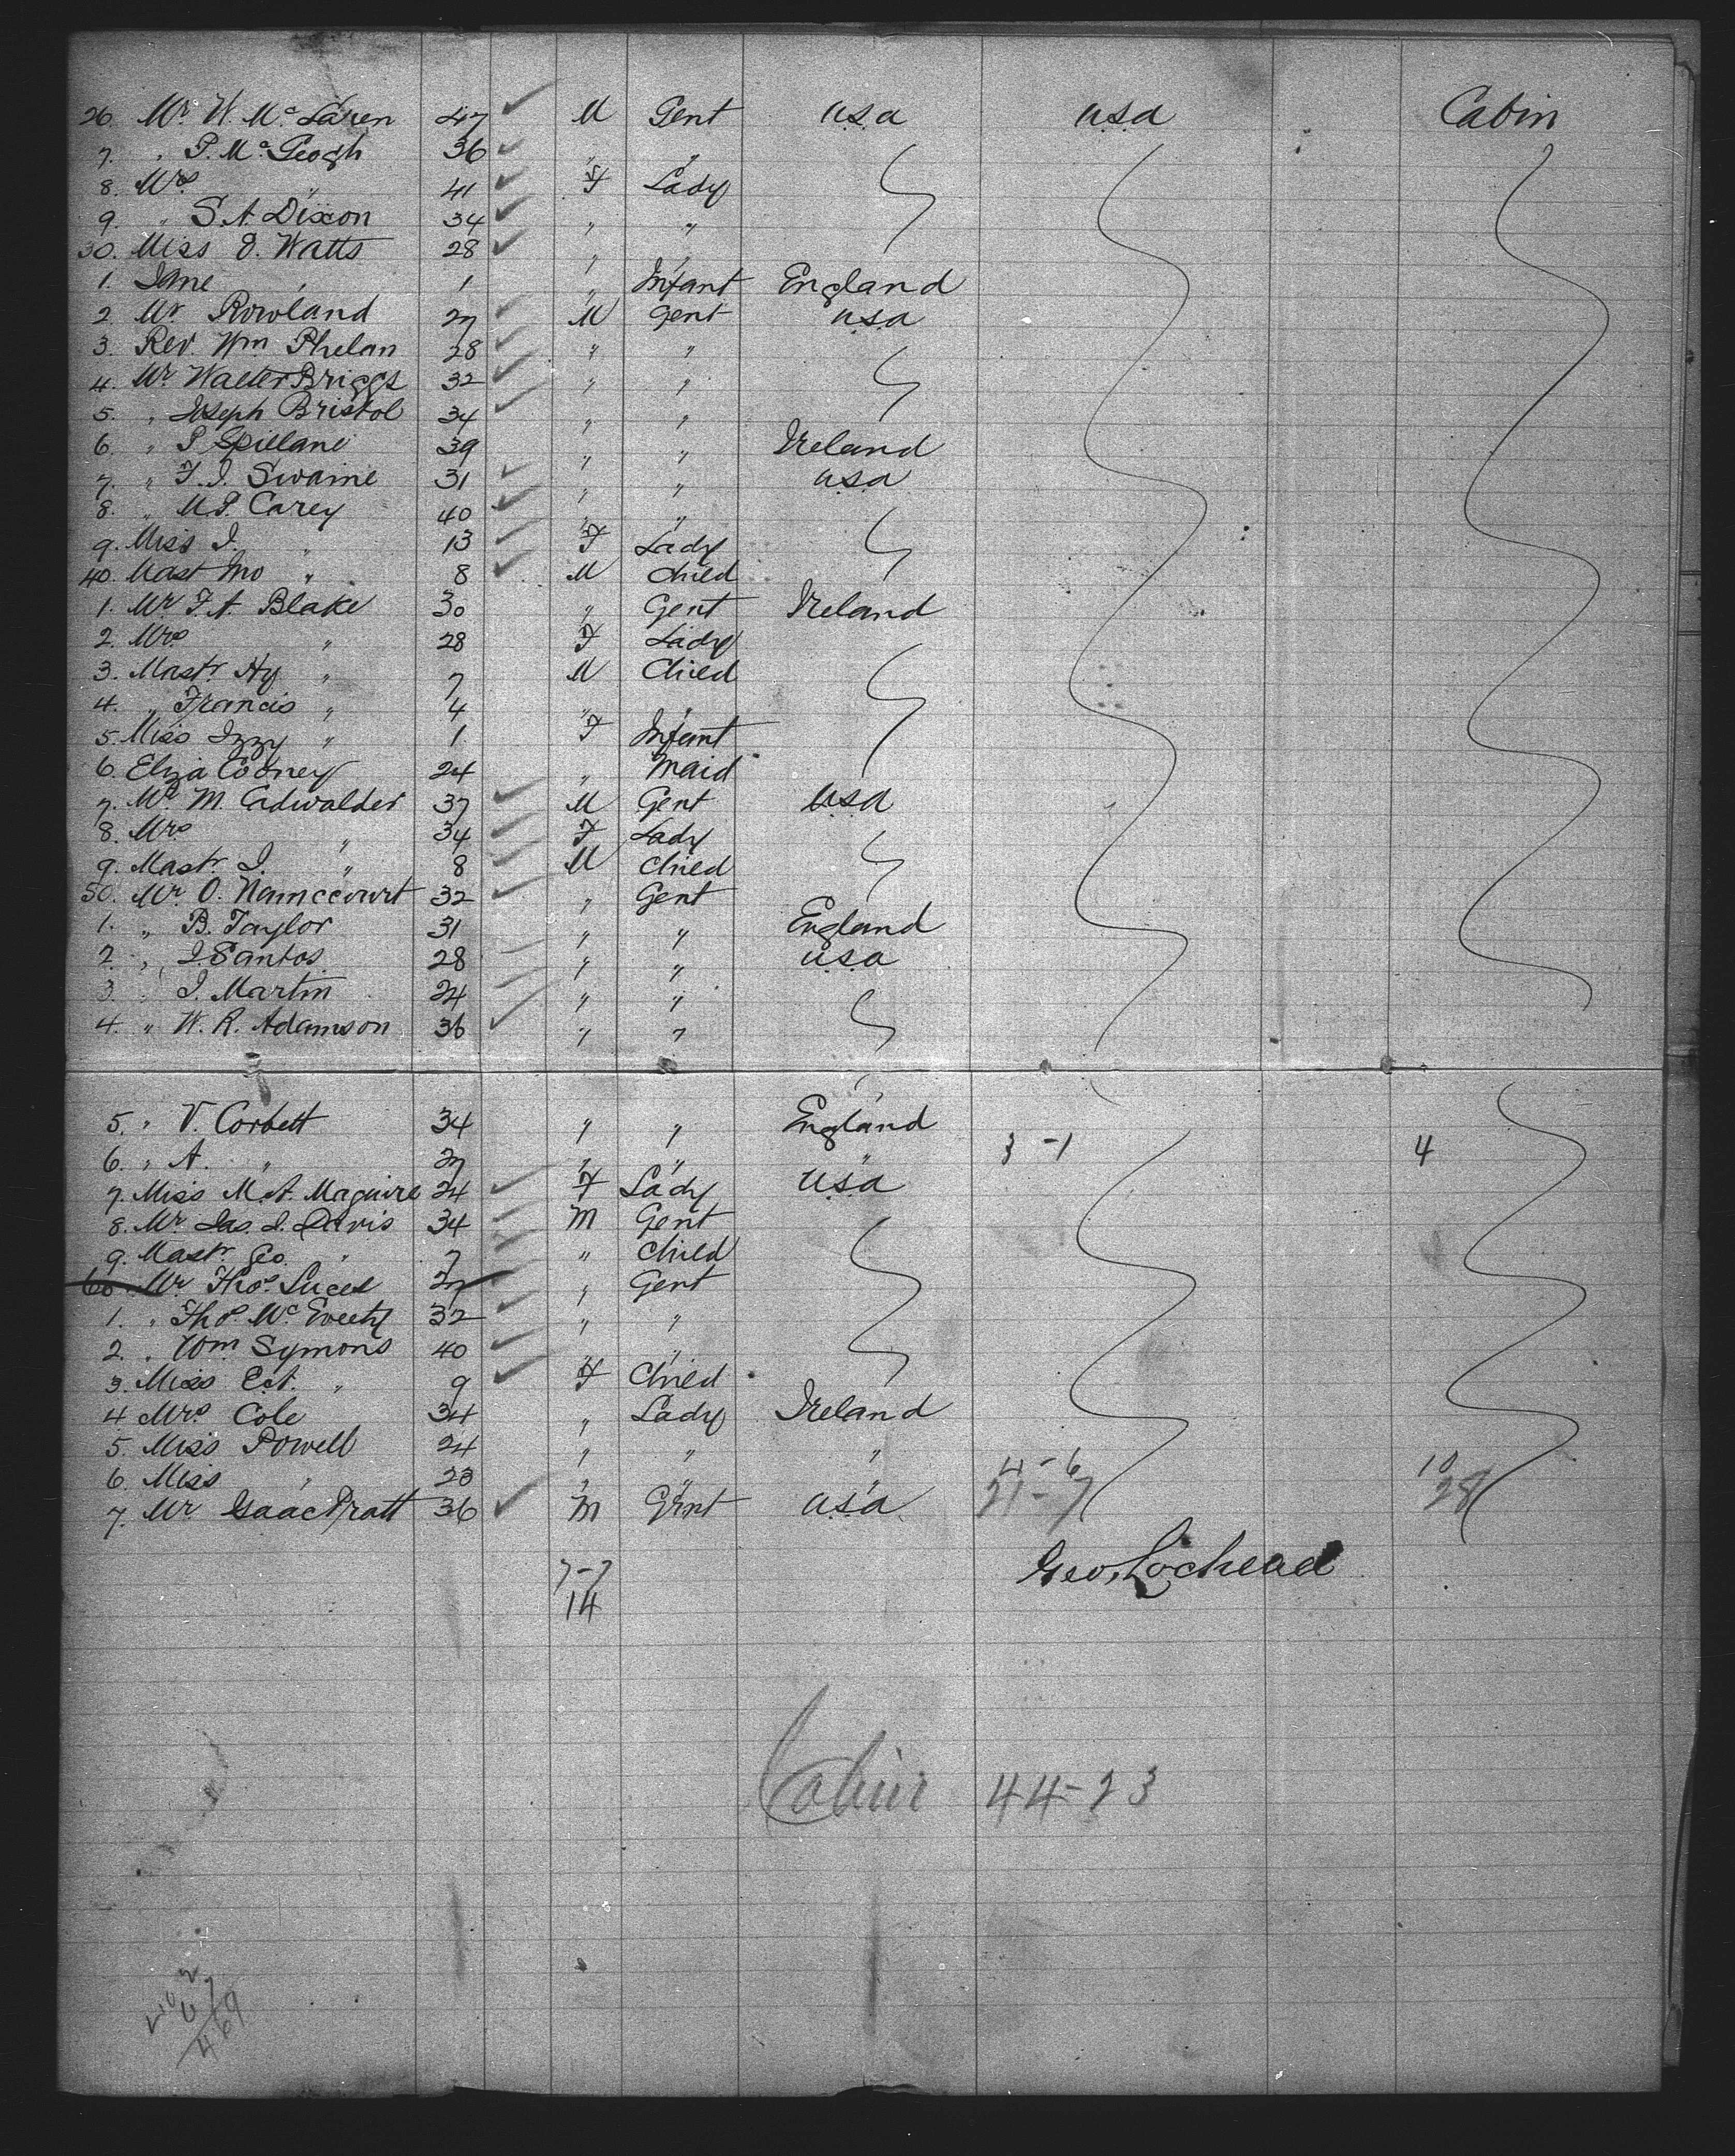 26. Mr. W. Mc Laren 47 M Gent U.S.A U.S.A Cabin
7. " P. Mc Geogh 36 " "
8. Mrs " 41 F Lady
9. " S. A. Dixon 34 " "
30. Miss O. Watts 28 " "
1. Jane " 1 " Infant England
2. Mr Rowland 27 M Gent U.S.A
3. Rev. Wm Phelan 28 " "
4. Mr Walter Briggs 32 " "
5. " Joseph Bristol 34 " "
6. " P Spillane 39 " " Ireland
7. " F. J. Swaine 31 " " U.S.A
8. " M. P. Carey 40 " "
9. Miss J. " 13 F Lady
40. Mast Jno " 8 M Child
1. Mr F. A. Blake 30 " Gent Ireland
2. Mrs " 28 F Lady
3. Mastr Hy " 7 M Child
4. " Francis " 4 " "
5. Miss Izzy " 1 F Infant
6. Eliza Cooney 24 " Maid
7. Mr M. Cadwalder 37 M Gent U.S.A
8. Mrs " 34 F Lady
9. Mastr J. " 8 M Child
50. Mr. O. 32 " Gent
1. " B. Taylor 31 " " England
2. " J. Santos 28 " " U.S.A
3. " J. Martin 24 " "
4. " W. R. Adamson 36 " "
5. " V. Corbett 34 " " England
6. " A. " 27 " " " 3 - 1 4
7. Miss M. A. Maguire 24 F Lady U.S.A
8. Mr. Jas. J. Davis 34 M Gent
9. Mastr Geo. " 7 " Child
60. Mr Thos. 27 " Gent
1. " Thos. Mc 32 " "
2. " Wm. Symons 40 " "
3. Miss E.A. " 9 F Child
4 Mrs Cole 34 " Lady Ireland
5. Miss Powell 24 " " "
6. Miss " 23 " " " 4 - 6 10
7. Mr Isaac Pratt 36 M Gent U.S.A. 21 - 7 28
Geo. Lochead
7-7
14
Cabin 44-23
2
67
469